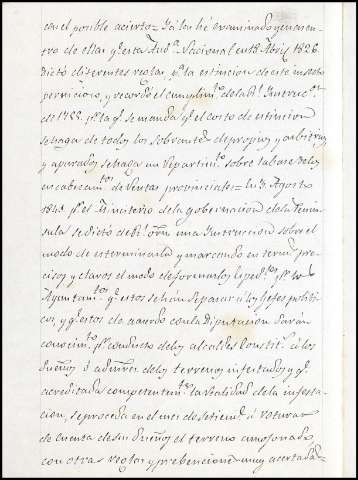 con el posible acierto = Yo los he examinado y encuen-
tro de ellas q.e esta Aud.a Nacional en 18 Abril 1826
dictó diferentes reglas p.a la estincion de este insecto
pernicioso, y recordó el cumplim.to de la R.l Instrucc.on
de 1755. p.r la q.e se manda q.e el costo de estincion
se haga de todos los sobrantes de propios y arbitrios
y apurados se haga un repartim.to sobre la base de los
encabezam.tos de rentas provinciales = En 3 Agosto
1841 p.r el Ministerio de la gobernacion de la Penin-
sula se dicto de R.l orn una Instruccion sobre el
modo de esterminarla y marcando en term.s pre-
cisos y claros el modo de formar los esped.tes p.r los
Ayuntam.tos q.e estos se harán separar a los Gefes politi-
cos, y q.e estos de acuerdo con la Diputacion darán
conocim.to p.r conducto de los alcaldes Constit.s a los
dueños ó admres de los terrenos infestados y q.e
acreditada competentem.te la realidad de la infesta-
cion, se proceda en el mes de Setiem.e á roturar
de cuenta de sus dueños el terreno amojonado,
con otras reglas y prebenciones muy acertadas =